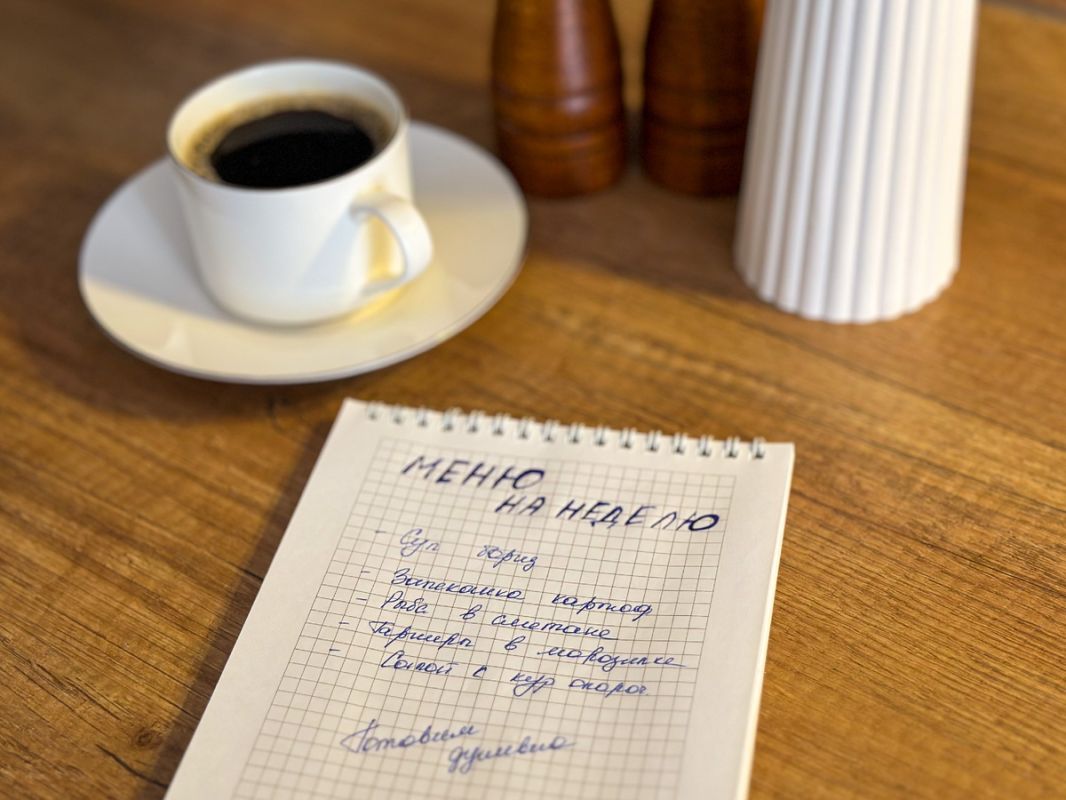 МЕНЮ
НА НЕДЕЛЮ
- Суп борщ
- Запеканка картоф
- Рыба в сметане
- Гарниры в морозилке
- Салат с кур окороч
Готовим
душевно